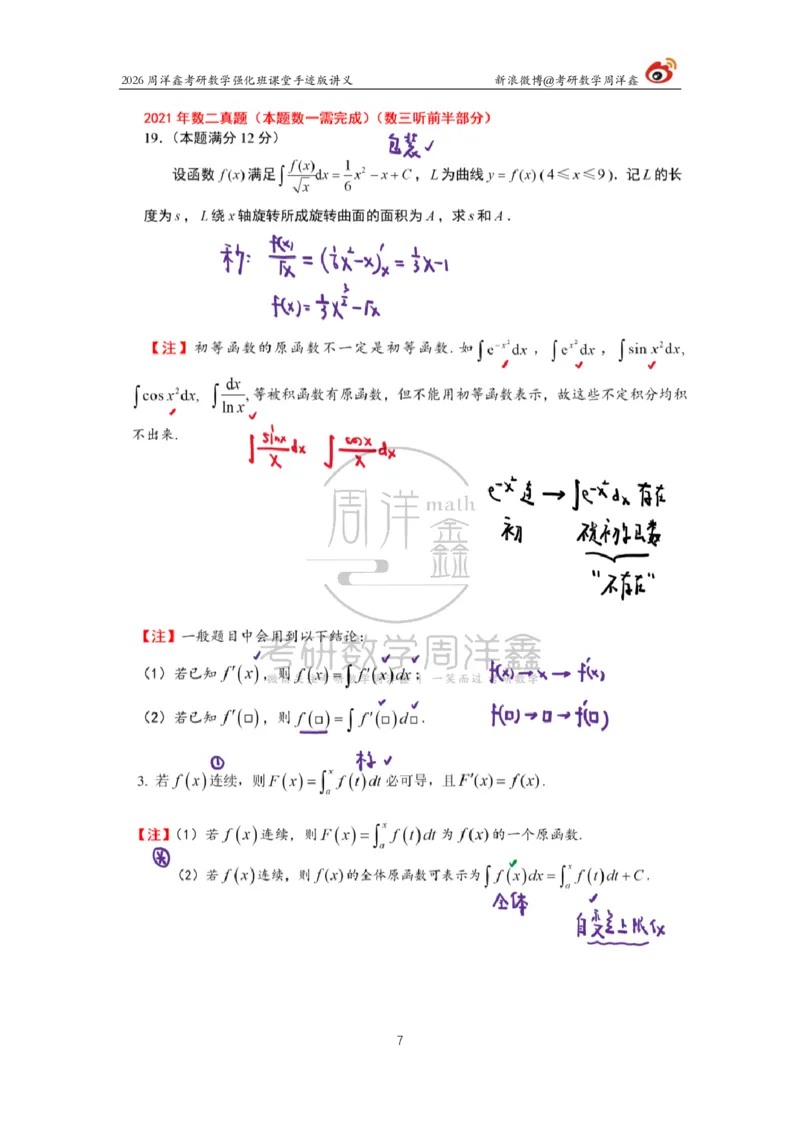 2026 周洋鑫考研数学强化班课堂手迹版讲义 新浪微博@考研数学周洋鑫
2021 年数二真题（本题数一需完成）（数三听前半部分）
19.（本题满分 12 分）
包装✓
设函数 f(x) 满足 ∫ f(x)/√x dx = 1/6 x² − x + C，L 为曲线 y = f(x) ( 4 ≤ x ≤ 9 )．记 L 的长
度为 s，L 绕 x 轴旋转所成旋转曲面的面积为 A，求 s 和 A．
f(x)/√x = (1/6 x² − x)'ₓ = 1/3 x − 1
f(x) = 1/3 x^(3/2) − √x
【注】初等函数的原函数不一定是初等函数. 如 ∫ e^(−x²) dx，∫ e^(x²) dx，∫ sin x² dx,
∫ cos x² dx, ∫ dx/ln x, 等被积函数有原函数，但不能用初等函数表示，故这些不定积分均积
不出来.
∫ sinx/x dx ∫ cosx/x dx
e^(−x²) 连 → ∫ e^(−x²) dx 存在
初 初等函数
“不存在”
周洋 math 鑫
周洋鑫考研数学讲义
【注】一般题目中会用到以下结论：
考研数学周洋鑫
（1）若已知 f′(x)，则 f(x) = ∫ f′(x)dx； f(x) → x → f′(x)
一笑而过 考研数学
（2）若已知 f′(□)，则 f(□) = ∫ f′(□)d□． f(□) → □ → f′(□)
①
3. 若 f(x) 连续，则 F(x) = ∫ₐˣ f(t)dt 必可导，且 F′(x) = f(x)．
【注】（1）若 f(x) 连续，则 F(x) = ∫ₐˣ f(t)dt 为 f(x) 的一个原函数.
（2）若 f(x) 连续，则 f(x) 的全体原函数可表示为 ∫ f(x)dx = ∫ₐˣ f(t)dt + C．
全体
7